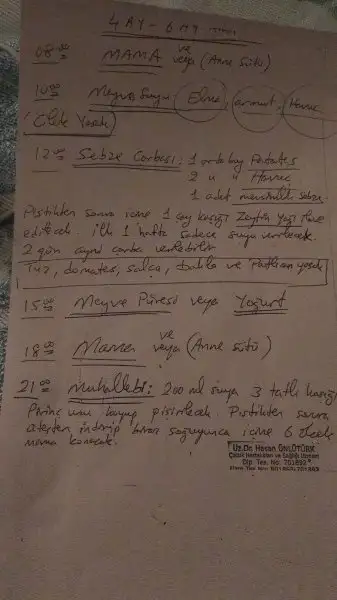 4 AY - 6 AY
08:00 MAMA ve veya (Anne Sütü)
10:00 Meyva Suyu (Elma, armut, Havuc
(Çilek Yasak)
12:00 Sebze Corbası: 1 orta boy Patates
2 u u Havuç
1 adet mevsimlik sebze.
Pistikten sonra icine 1 çay kaşığı Zeytin Yağı ilave
edilecek. ilk 1 hafta sadece suyu verilecek.
2 gün aynı çorba verilebilir
Tuz, domates, salça, bakla ve Patlıcan yasak
15:00 Meyve Püresi veya Yoğurt
18:00 Mama ve veya (Anne Sütü)
21:00 Muhallebi: 200 ml suya 3 tatlı kaşığı
Pirinç unu koyup pisirilecek. Pistikten sonra
atesten indirip biraz soğuyunca icine 6 ölçek
mama konacak.
Uz.Dr. Hasan ÜNLÜTÜRK
Çocuk Hastalıkları ve Sağlığı Uzmanı
Dip. Tes. No: